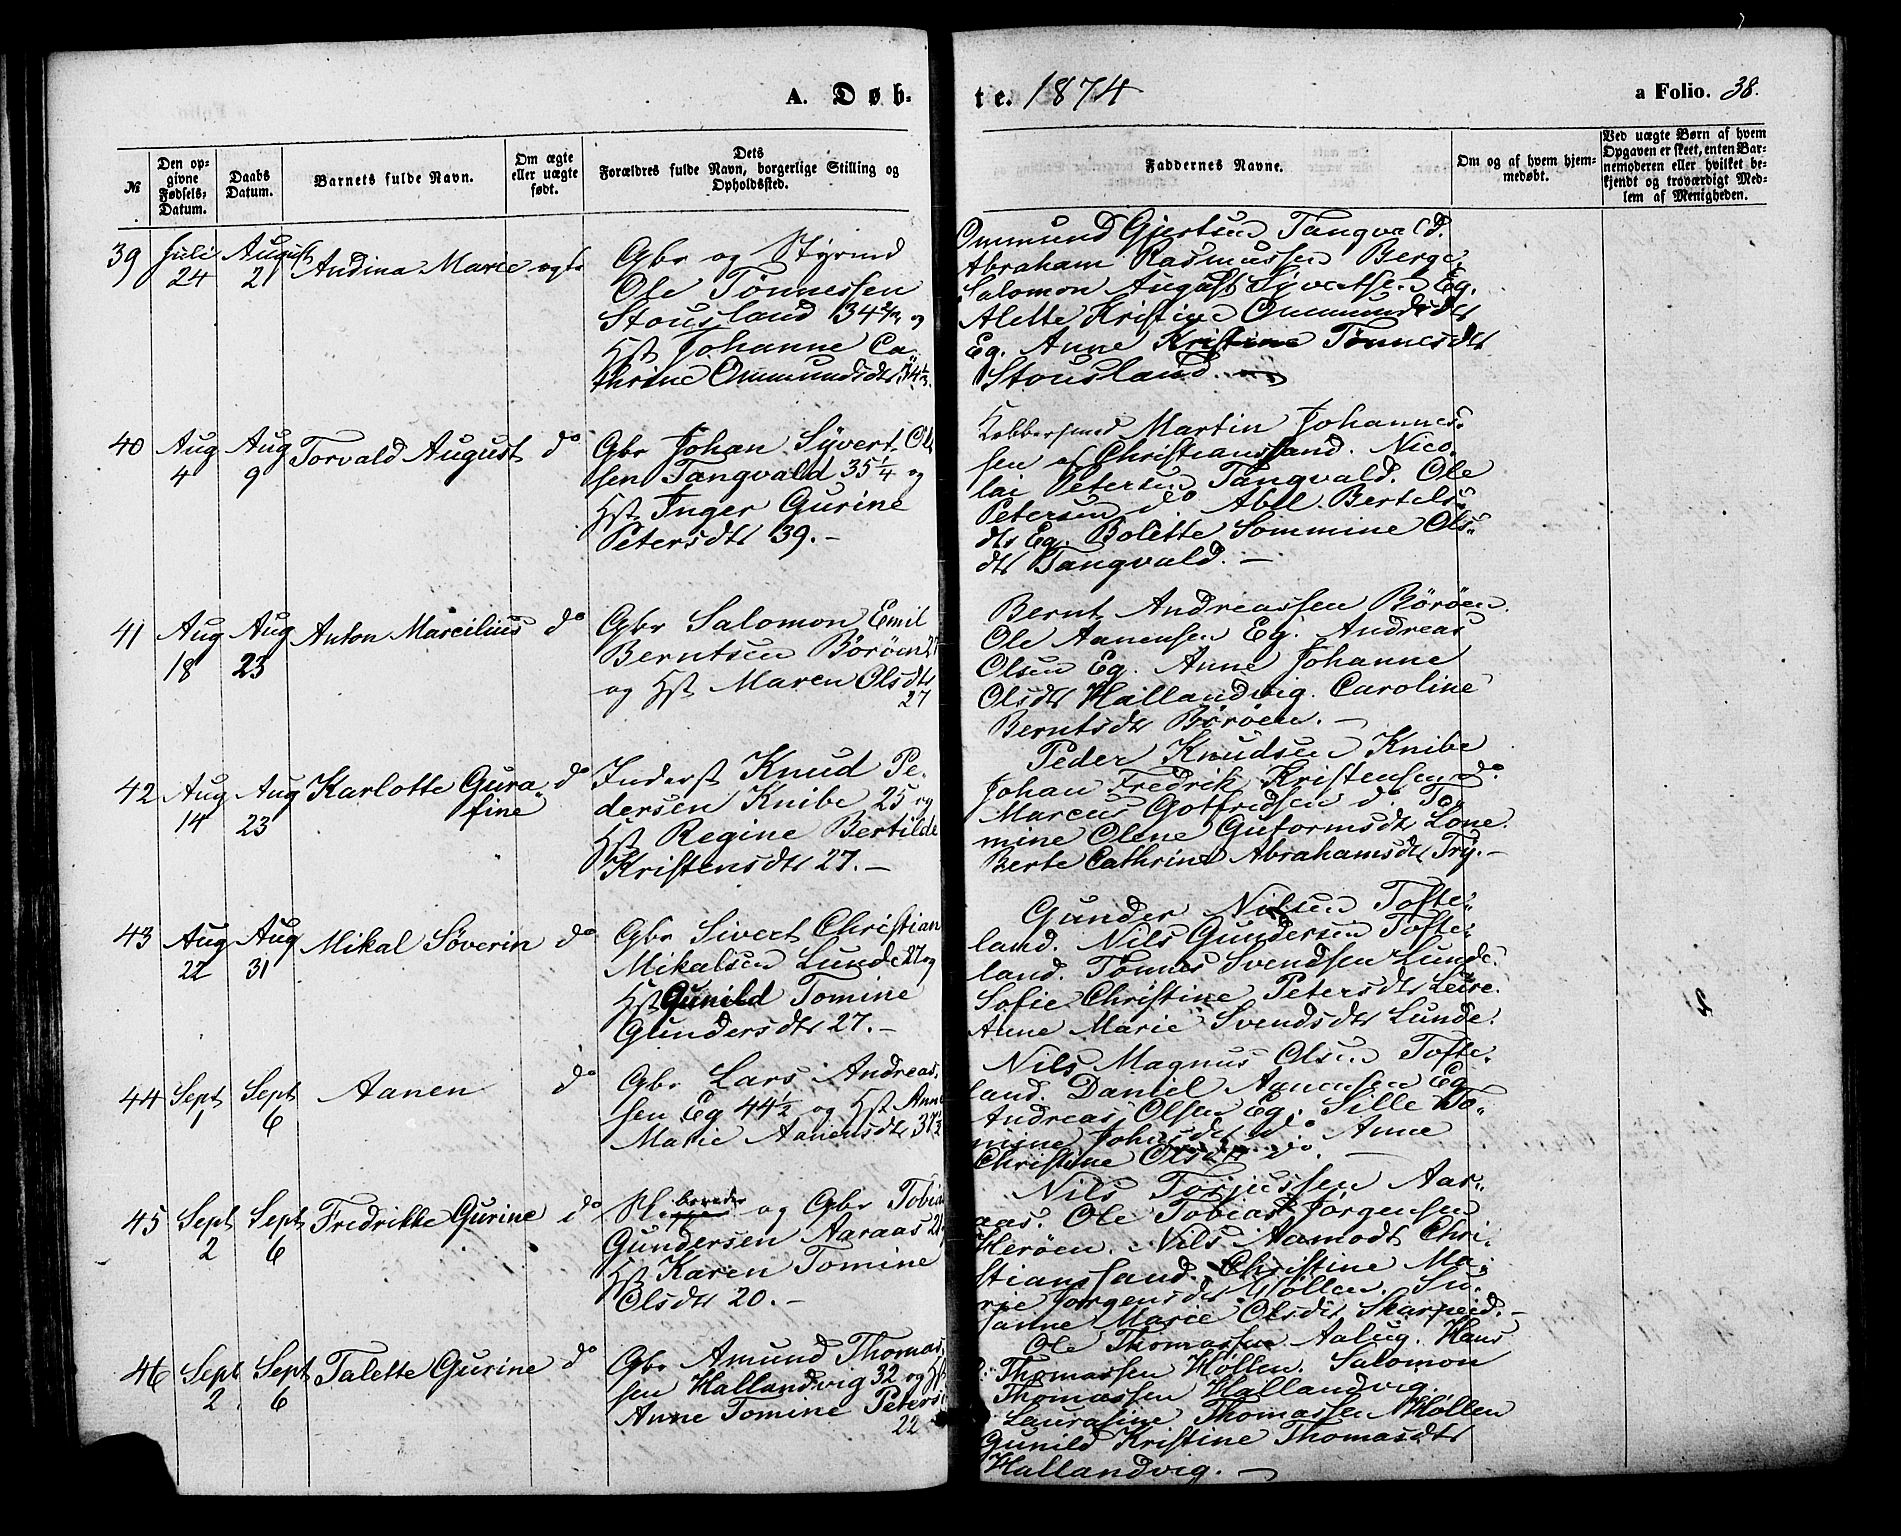 A. Døb-
te. 1874
a Folio. 38.
№
Den op-
givne
Fødsels-
Datum.
Daabs
Datum.
Barnets fulde Navn.
Om ægte
eller uægte
født.
Dets
Forældres fulde Navn, borgerlige Stilling og
Opholdssted.
Faddernes Navne.
Om og af hvem hjem-
medøbt.
Ved uægte Børn af hvem
Opgaven er skeet, enten Bar-
nemoderen eller hvilket be-
kjendt og troværdigt Med-
lem af Menigheden.
39
Juli
24
August
21
Andina Marie
ægte
Gbr og Styrmd
Ole Tønnessen
Stousland 34 og
Hst Johanne Ca
thrine Ommundsdtr
Ommund Gjertsen Tangvald.
Abraham Rasmussen Berge.
Salomon August Syvertsen Eg.
Alette Kristine Ommundsdtr
Eg. Anne Kristine Tønnesdtr
Stousland.
40
Aug
4
Aug
9
Torvald August
do
Gbr Johan Syvert Ol
sen Tangvald 35¼ og
Hst Inger Gurine
Petersdtr 39. —
Kobbersmed Martin Johannes-
sen af Christianssand. Nico-
lai Petersen Tangvald. Ole
Petersen do. Abel Bertels-
dtr Eg. Bolette Sommine Ols-
dtr Tangvald. —
41
Aug
18
Aug
23
Anton Marcilius
do
Gbr Salomon Emil
Berntsen Børøen
og Hst Maren Olsdtr
27
Bernt Andreassen Børøen.
Ole Aanensen Eg. Andreas
Olsen Eg. Anne Johanne
Olsdtr Hallandvig. Caroline
Berntsdtr Børøen. —
42
Aug
14
Aug
23
Karlotte Gura
fine
do
Inderst Knud Pe-
dersen Knibe 25 og
Hst Regine Bertilde
Kristensdtr 27. —
Peder Knudsen Knibe
Johan Fredrik Kristensen do.
Marcus Gotfredsen do. To-
mine Olene Guttormsdtr Lone.
Berte Cathrine Abrahamsdtr Try. —
43
Aug
22
Aug
31
Mikal Söverin
do
Gbr Sivert Christian
Mikalsen Lunde 27 og
Hst Gunild Tomine
Gundersdtr 27. —
Gunder Nilsen Tofte-
land. Nils Gundersen Tofte-
land. Tønnes Svendsen Lunde.
Sofie Christine Petersdtr Leire.
Anne Marie Svendsdtr Lunde.
44
Sept
1
Sept
6
Aanen
do
Gbr Lars Andreas-
sen Eg 44½ og Hst Anne
Marie Aanensdtr 37½
Nils Magnus Olsen Tofte-
land. Daniel Aanensen Eg
Andreas Olsen Eg. Sille To-
mine Johnsdtr do. Anne
Christine Olsdtr do. —
45
Sept
2
Sept
6
Fredrikke Gurine
do
og Gbr Tobias
Gundersen Aaraas
Hst Karen Tomine
Olsdtr 20. —
Nils Torjussen Aar-
aas. Ole Tobias Jørgensen
Herøen. Nils Aamodt Chri-
stianssand. Christine Ma-
rie Jørgensdtr Møllen. Su-
sanne Marie Olsdtr Skarpeid. —
46
Sept
2
Sept
6
Talette Gurine
do
Gbr Amund Thomas-
sen Hallandvig 32 og Hst
Anne Tomine Peters
22
Ole Thomassen Aalug. Hans
Thomassen Høllen. Salomon
Thomassen Hallandvig.
Laurasine Thomassen Høllen
Gunild Kristine Thomasdtr
Hallandvig. —